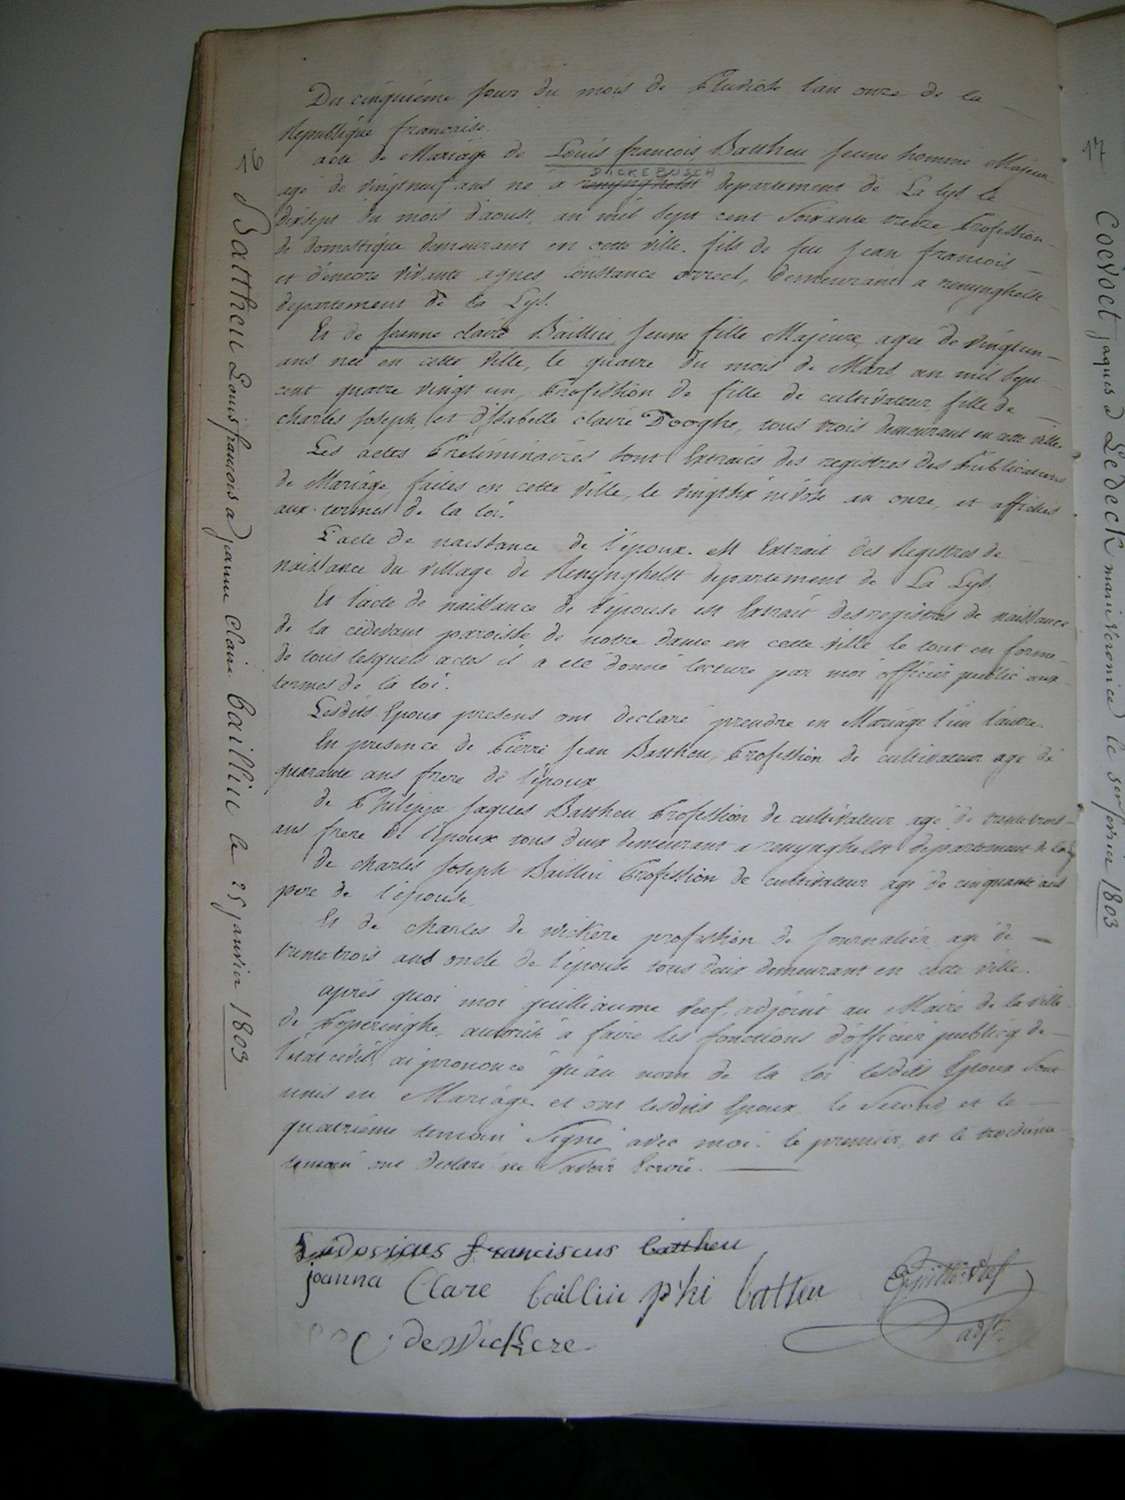 Du cinquiéme jour du mois de Pluviose l'an onze de la
Republique francaise.
acte de Mariage de Louis francois Battheu jeune homme Majeur
DICKEBUSCH
agé de vingtneuf ans né a renynghelst departement de La Lys le
dixsept du mois d'aoust, an mil sept cent soixante treize Profession
de domestique demeurant en cette ville. fils de feu jean francois
et d'encore vivante agnes Constance, demeurant a renynghelst
departement de la Lys.
Et de jeanne claire Bailliu jeune fille Majeure, agée de vingt un
ans née en cette ville, le quatre du mois de Mars an mil sept
cent quatre vingt un, Profession de fille de cultivateur, fille de
charles joseph, et d'Isabelle claire Dooghe, tous trois demeurant en cette ville
Les actes Preliminaires sont Extraits des registres des Publications
de Mariage faites en cette ville, le nivôse an onze, et affichés
aux termes de la loi.
L'acte de naissance de l'époux est Extrait des Registres de
naissance du village de Renynghelst departement de La Lys.
Et l'acte de naissance de l'épouse est Extrait des registres de naissance
de la cidevant paroisse de notre dame en cette ville le tout en forme
de tous lesquels actes il a été donné lecture par moi officier public aux
termes de la loi.
Lesdits Epoux presens ont declaré prendre en Mariage l'un l'autre.
En presence de Pierre jean Battheu, Profession de cultivateur agé de
quarante ans frere de l'époux
de Philippe jaques Battheu Profession de cultivateur agé de trente trois
ans frere de l'époux tous deux demeurant a renynghelst departement de la Lys
de charles joseph Bailliu Profession de cultivateur agé de cinquante ans
pere de l'épouse
Et de charles de wickere profession de journalier agé de
trente trois ans oncle de l'épouse tous deux demeurant en cette ville.
après quoi moi guilliaume reef, adjoint au Maire de la ville
de Poperinghe autorisé a faire les fonctions d'officier publicq de
l'état civil ai prononcé qu'au nom de la loi lesdits Epoux sont
unis en Mariage et ont lesdits Epoux le second et le
quatrième temoin signé avec moi. le premier et le troisième
temoin ont declaré ne savoir Ecrire.
Ludovicus franciscus battheu
joanna Clare bailliu p'hi battheu
C: de Wickere
adjt.
16 Battheu Louis francois a jeanne Claire bailliu le 25 janvier 1803
17 Coevoet jaques a Ledeck marie Veronice le 1er fevrier 1803